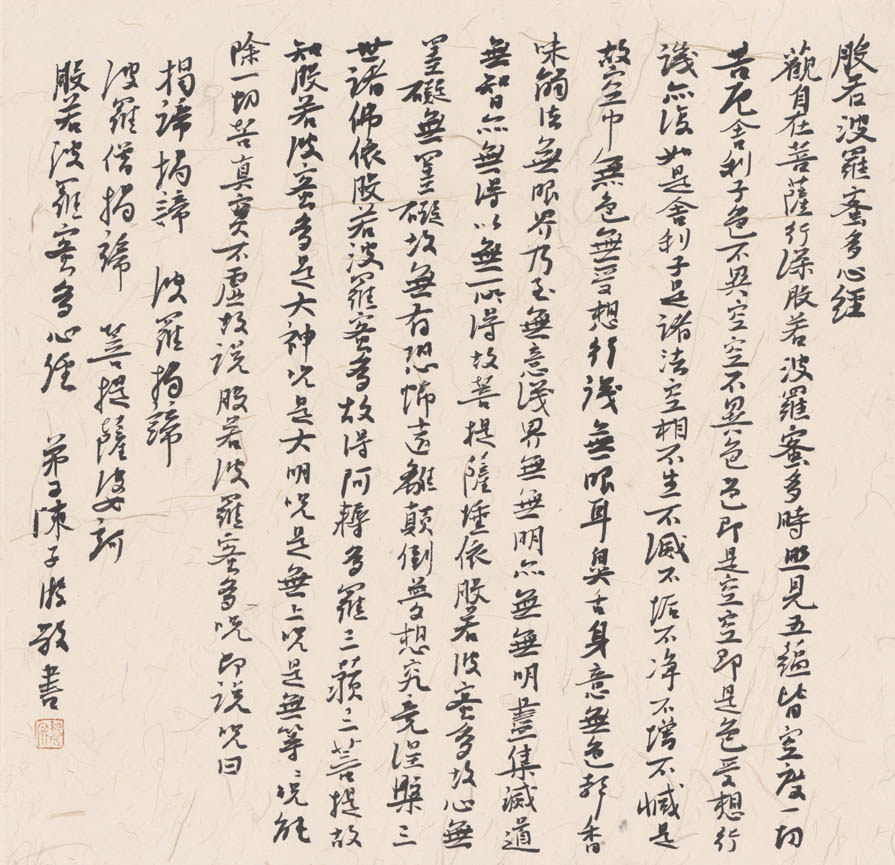 般若波羅蜜多心經
觀自在菩薩行深般若波羅蜜多時照見五蘊皆空度一切
苦厄舍利子色不異空空不異色色即是空空即是色受想行
識亦復如是舍利子是諸法空相不生不滅不垢不净不增不減是
故空中無色無受想行識無眼耳鼻舌身意無色聲香
味觸法無眼界乃至無意識界無無明亦無無明盡集滅道
無智亦無得以無所得故菩提薩埵依般若波蜜多故心無
罣礙無罣礙故無有恐怖遠離顛倒夢想究竟涅槃三
世諸佛依般若波羅蜜多故得阿耨多羅三藐三菩提故
知般若波蜜多是大神咒是大明咒是無上咒是無等々咒能
除一切苦真實不虛故說般若波羅蜜多咒即說咒曰
揭諦揭諦 波羅揭諦
波羅僧揭諦 菩提薩婆訶
般若波羅蜜多心經 弟子陳子敬書